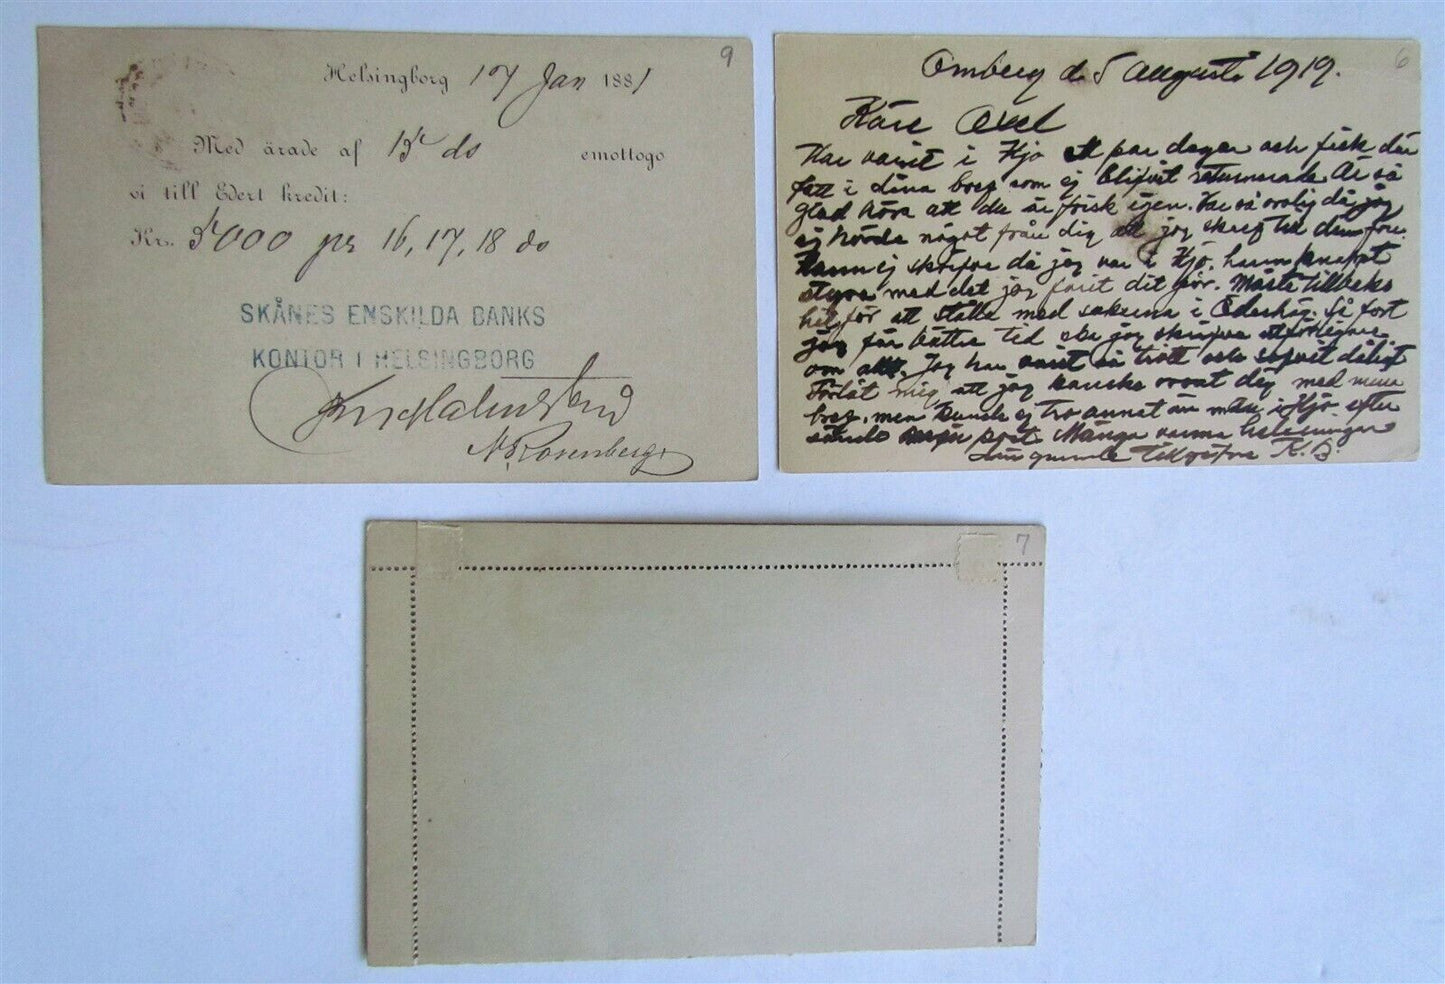 9
Helsingborg 17 Jan 1881
Med ärade af 15 ds emottogo
vi till Edert kredit:
Kr. 5000 per 16, 17, 18 ds
SKÅNES ENSKILDA BANKS
KONTOR I HELSINGBORG
N Rosenberg
6
Omberg d. 5 Augusti 1919.
Käre Axel
Har varit i Hjo ett par dagar och fick där
fatt i dina bref som ej blifvit returnerade. Är så
glad höra att du är frisk igen. Var så orolig då jag
ej hörde något från dig att jag skref till
ej skrifva då jag var i Hjo, hann knappt
styra med det jag farit dit för. Måste tillbaka
hit för att ställa med sakerna i Ödeshög. Så fort
jag får bättre tid ska jag skrifva
om allt. Jag har varit så trött och sofvit dåligt
Förlåt mig att jag kanske oroat dig med mina
bref, men kunde ej tro annat än man i Hjo efter
sände min post. Många varma helsningar
din gamla tillgifna K. B.
7